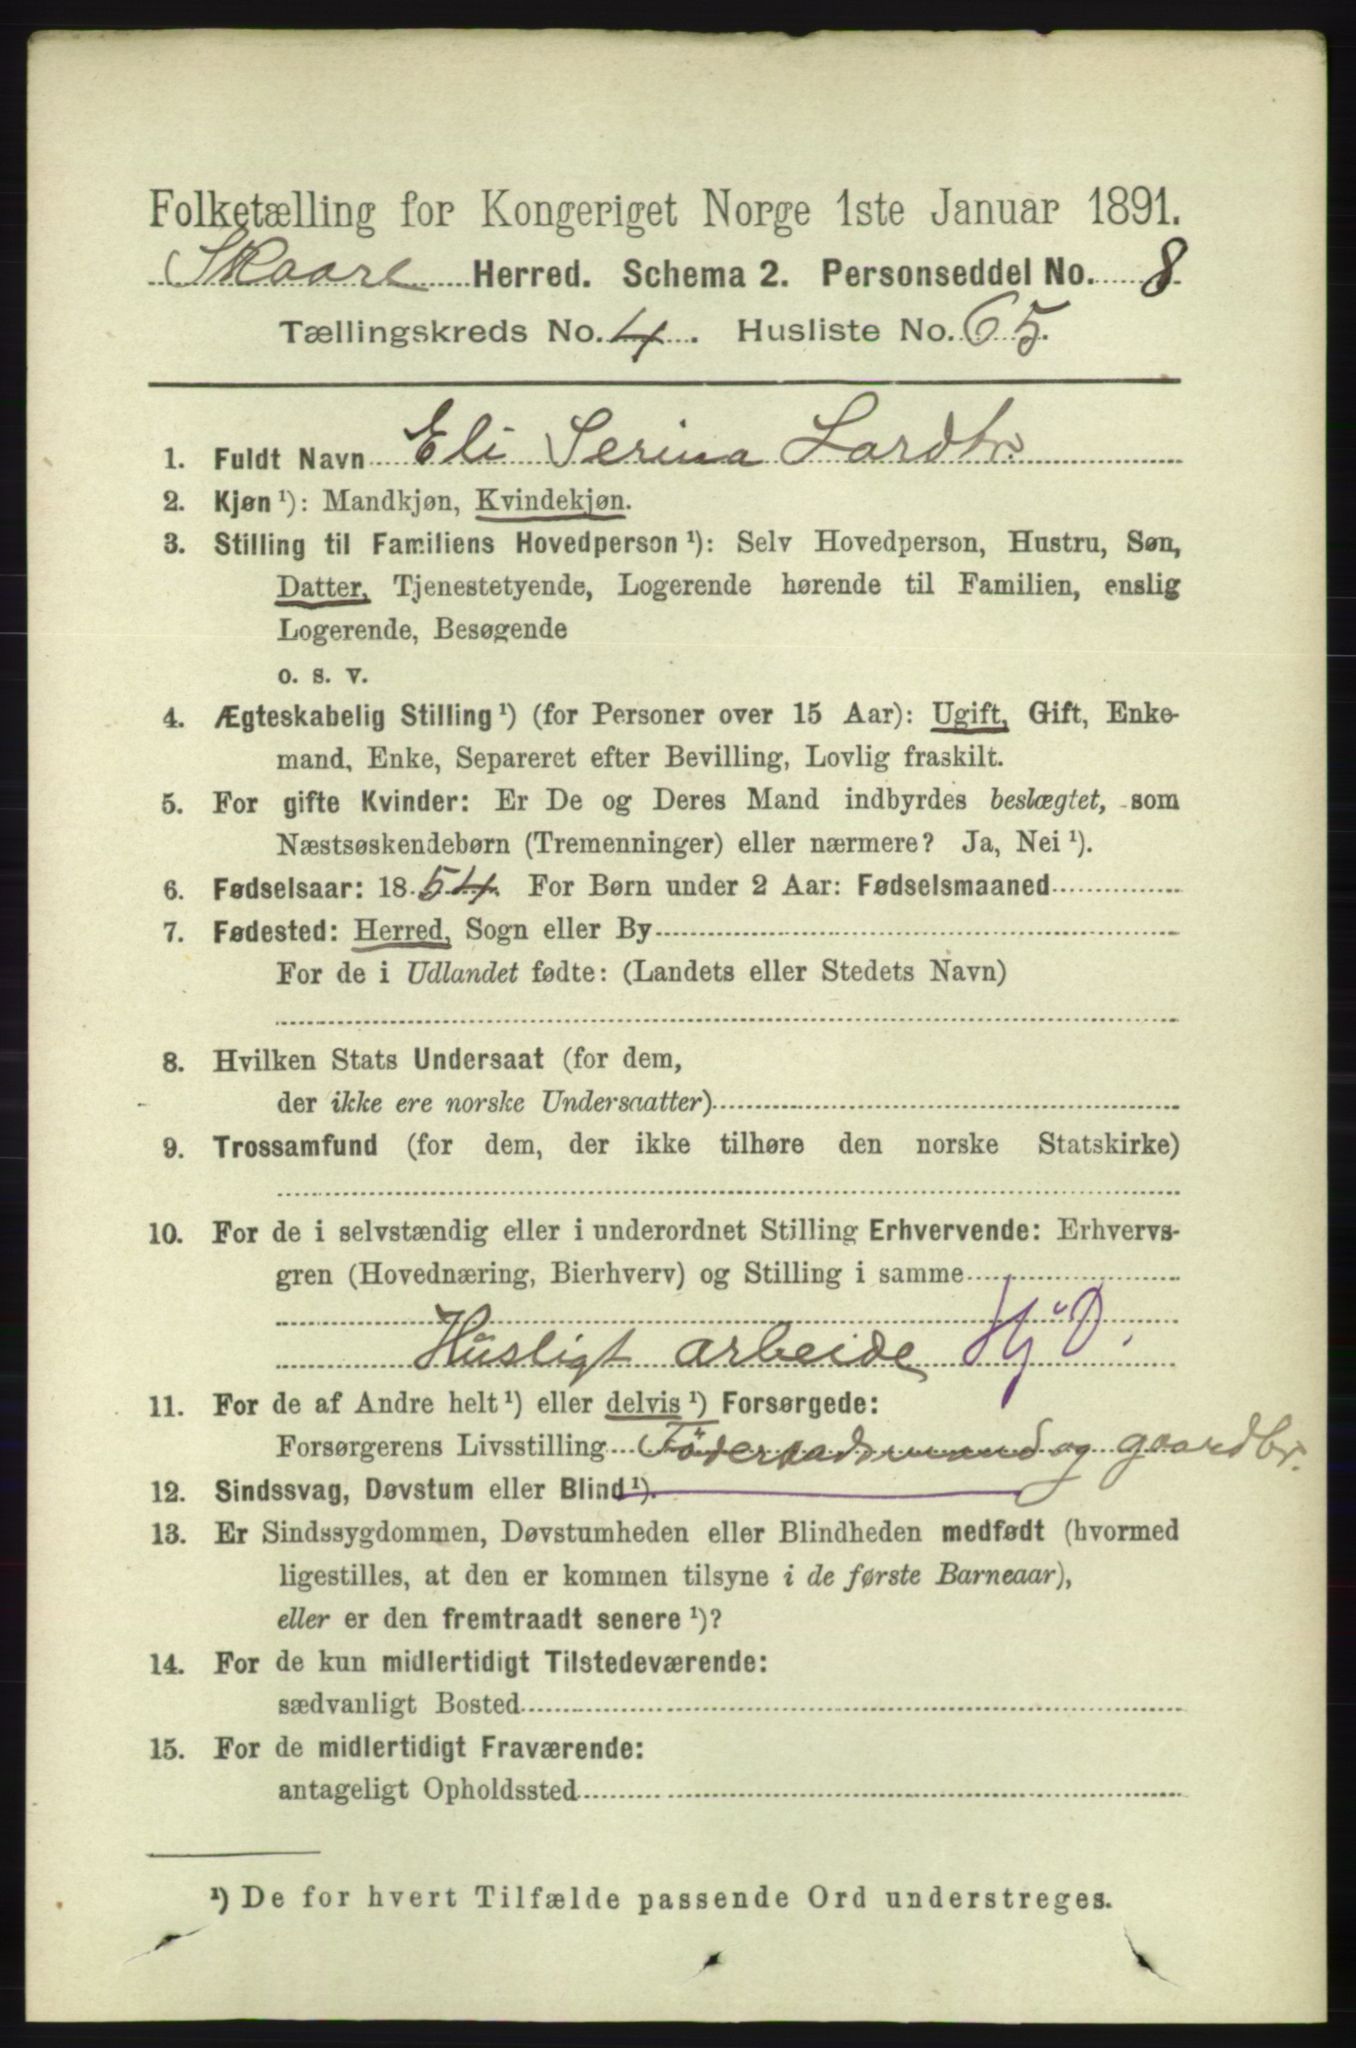 Folketælling for Kongeriget Norge 1ste Januar 1891.
Skaare Herred. Schema 2. Personseddel No. 8
Tællingskreds No. 4. Husliste No. 65.
1. Fuldt Navn Eli Serina Lardtr.
2. Kjøn ¹): Mandkjøn, Kvindekjøn.
3. Stilling til Familiens Hovedperson ¹): Selv Hovedperson, Hustru, Søn,
Datter, Tjenestetyende, Logerende hørende til Familien, enslig
Logerende, Besøgende
o. s. v.
4. Ægteskabelig Stilling ¹) (for Personer over 15 Aar): Ugift, Gift, Enke-
mand, Enke, Separeret efter Bevilling, Lovlig fraskilt.
5. For gifte Kvinder: Er De og Deres Mand indbyrdes beslægtet, som
Næstsøskendebørn (Tremenninger) eller nærmere? Ja, Nei ¹).
6. Fødselsaar: 1854. For Børn under 2 Aar: Fødselsmaaned
7. Fødested: Herred, Sogn eller By
For de i Udlandet fødte: (Landets eller Stedets Navn)
8. Hvilken Stats Undersaat (for dem,
der ikke ere norske Undersaatter)
9. Trossamfund (for dem, der ikke tilhøre den norske Statskirke)
10. For de i selvstændig eller i underordnet Stilling Erhvervende: Erhvervs-
gren (Hovednæring, Bierhverv) og Stilling i samme
Husligt arbeide Hj D.
11. For de af Andre helt ¹) eller delvis ¹) Forsørgede:
Forsørgerens Livsstilling Föderaadsmand og gaardbr.
12. Sindssvag, Døvstum eller Blind ¹).
13. Er Sindssygdommen, Døvstumheden eller Blindheden medfødt (hvormed
ligestilles, at den er kommen tilsyne i de første Barneaar),
eller er den fremtraadt senere ¹)?
14. For de kun midlertidigt Tilstedeværende:
sædvanligt Bosted
15. For de midlertidigt Fraværende:
antageligt Opholdssted
¹) De for hvert Tilfælde passende Ord understreges.